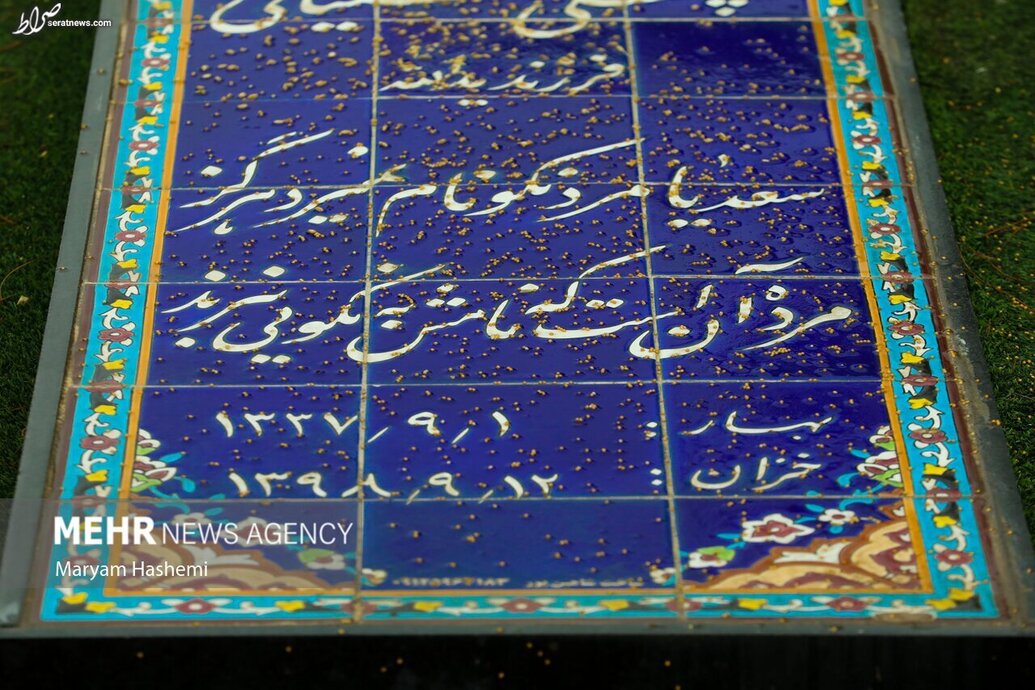 صراط
seratnews.com
فرزند یدالله
سعدیا مرد نکونام نمیرد هرگز
مرده آن است که نامش به نکویی نبرند
بهار : ۱ , ۹ , ۱۳۳۷
خزان : ۱۲ , ۹ , ۱۳۹۸
MEHR NEWS AGENCY
Maryam Hashemi